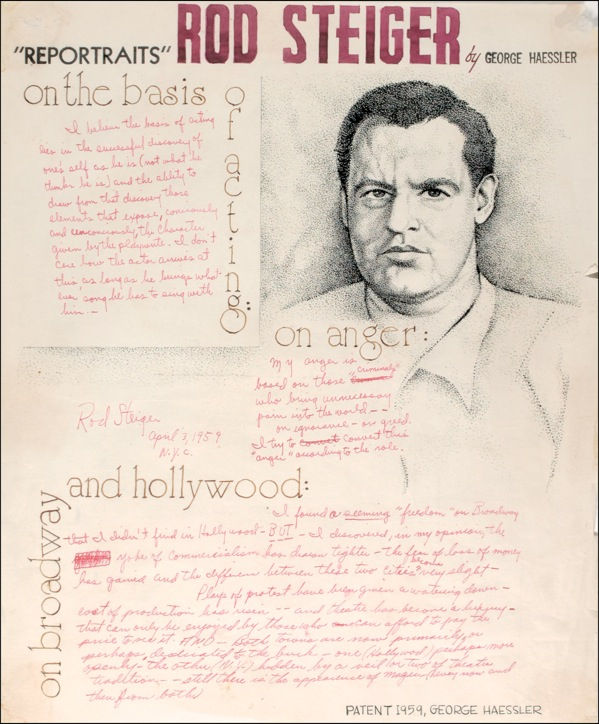 "REPORTRAITS" ROD STEIGER by GEORGE HAESSLER
on the basis
of acting:
I believe the basis of acting
lies in the successful discovery of
one's self as he is (not what he
thinks he is) and the ability to
draw from that discovery those
elements that expose, conciously
and unconciously, the character
given by the playwrite. I don't
care how the actor arrives at
this as long as he brings what
ever song he has to sing with
him. —
on anger:
My anger is
based on those "criminals"
who bring unnecessary
pain into the world --
on ignorance - on greed.
I try to convert this
"anger" according to the role.
Rod Steiger
April 3, 1959
N.Y.C.
on broadway
and hollywood:
I found a seeming "freedom" on Broadway
that I didn't find in Hollywood - BUT - I discovered, in my opinion, the
yoke of commercialism has drawn tighter - the fear of loss of money
has gained and the differen between these two cities became very slight -
Plays of protest have been given a watering down -
cost of production has risen -- and theatre has become a luxury -
that can only be enjoyed by those who can afford to pay the
price to see it. AND - Both towns are now primarily, or
perhaps, dedicated to the buck - one (Hollywood) perhaps more
openly - the other (N.Y.) hidden by a veil or two of theatre
tradition, -- still there is the appearence of magic every now and
then from both)
PATENT 1959, GEORGE HAESSLER